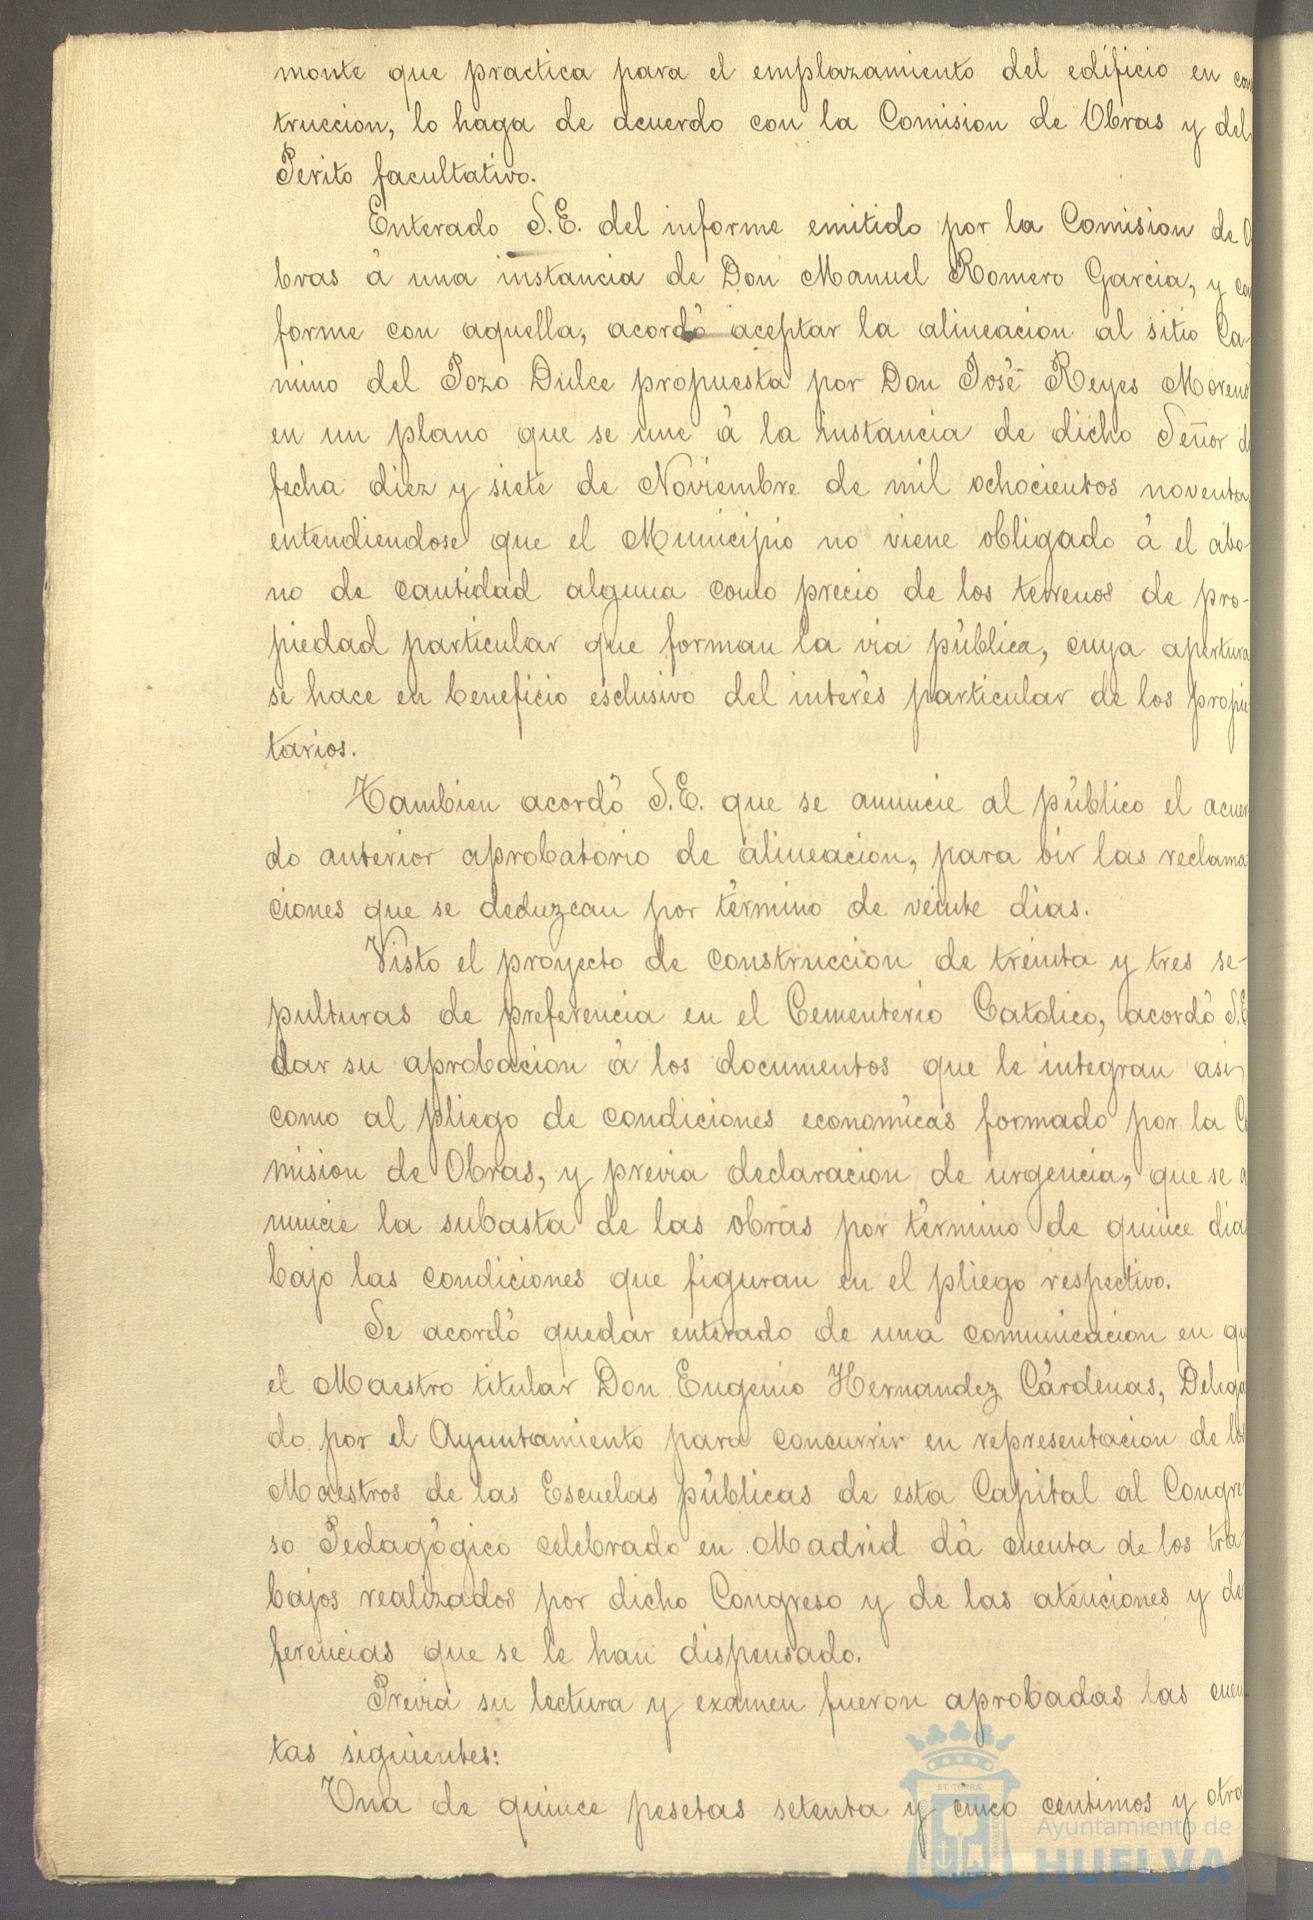 monte que practica para el emplazamiento del edificio en con
truccion, lo haga de acuerdo con la Comision de Obras y del
Perito facultativo.
Enterado S.E. del informe emitido por la Comision de O
bras á una instancia de Don Manuel Romero Garcia, y con
forme con aquella, acordó aceptar la alineacion al sitio Ca-
mino del Pozo Dulce propuesta por Don José Reyes Moreno
en un plano que se une á la instancia de dicho Señor de
fecha diez y siete de Noviembre de mil ochocientos noventa,
entendiendose que el Municipio no viene obligado á el abo-
no de cantidad alguna como precio de los terrenos de pro-
piedad particular que forman la via pública, cuya apertura
se hace en beneficio esclusivo del interés particular de los propie
tarios.
Tambien acordó S.E. que se anuncie al público el acuer
do anterior aprobatorio de alineacion, para oir las reclama
ciones que se deduzcan por término de veinte dias.
Visto el proyecto de construccion de treinta y tres se-
pulturas de preferencia en el Cementerio Catolico, acordó S.E
dar su aprobacion á los documentos que le integran asi
como al pliego de condiciones economicas formado por la Co
mision de Obras, y previa declaracion de urgencia, que se a
nuncie la subasta de las obras por término de quince dias
bajo las condiciones que figuran en el pliego respectivo.
Se acordó quedar enterado de una comunicacion en que
el Maestro titular Don Eugenio Hernandez Cárdenas, Delega
do por el Ayuntamiento para concurrir en representacion de los
Maestros de las Escuelas públicas de esta Capital al Congre
so Pedagógico celebrado en Madrid dá cuenta de los tra
bajos realizados por dicho Congreso y de las atenciones y de
ferencias que se le han dispensado.
Previa su lectura y examen fueron aprobadas las cuen
tas siguientes:
Una de quince pesetas setenta y cinco centimos y otra
Ayuntamiento de
HUELVA